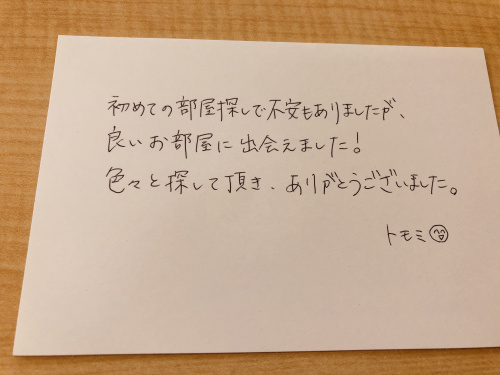 初めての部屋探しで不安もありましたが、
良いお部屋に出会えました!
色々と探して頂き、ありがとうございました。
トモミ